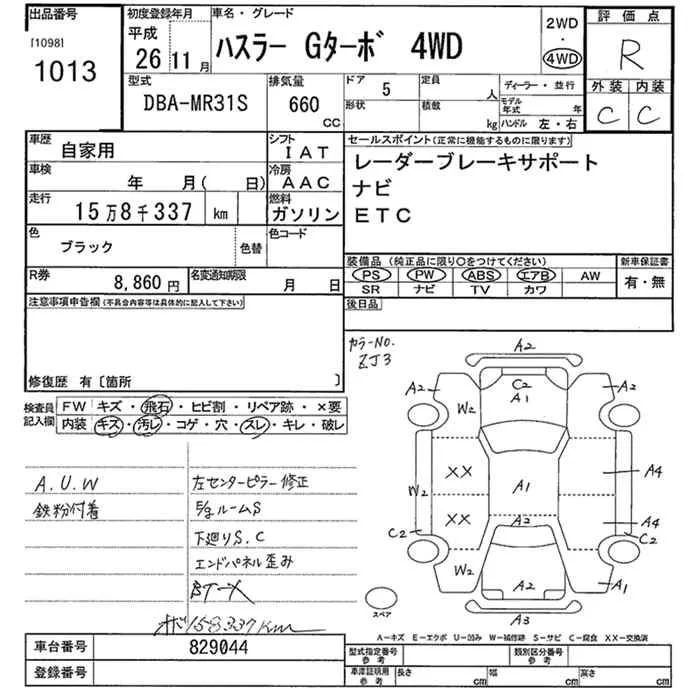 出品番号 [1098] 1013
初度登録年月 平成 26 11月
車名・グレード ハスラー Gターボ 4WD
2WD ・ 4WD
評価点 R
外装 内装
C C
型式 DBA-MR31S
排気量 660 CC
ドア 5
形状
定員 人
積載 kg
ディーラー・並行
モデル年式 年
ハンドル 左・右
車歴 自家用
シフト IAT
車検 年 月( 日)
冷房 AAC
走行 15万8千337 km
燃料 ガソリン
色 ブラック
色替
色コード
R券 8,860円
名変通知期限 月 日
セールスポイント(正常に機能するものに限ります)
レーダーブレーキサポート
ナビ
ETC
装備品(純正品に限り○をつけてください)
PS PW ABS エアB AW
SR ナビ TV カワ
新車保証書
有・無
後日品
注意事項申告欄(不具合内容等は具体的に記入して下さい)
修復歴 有[箇所 ]
検査員記入欄
FW キズ・飛石・ヒビ割・リペア跡・×要
内装 キズ・汚レ・コゲ・穴・スレ・キレ・破レ
A.U.W
鉄粉付着
左センターピラー修正
ルームS
下廻りS.C
エンドパネル歪み
158337Km
カラーNo.
ZJ3
A2
C2
A1
A2
A2
W2
W2
XX
XX
A1
A4
A4
A2
C2
C2
W2
A2
A1
A3
スペア
A-キズ E-エクボ U-凹み W-補修跡 S-サビ C-腐食 XX-交換済
車台番号 829044
登録番号
型式指定番号 参考
類別区分番号 参考
車庫証明用 参考 長さ cm 幅 cm 高さ cm